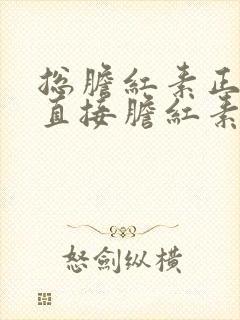 总膽紅素正
直接膽紅素
怒劍纵橫